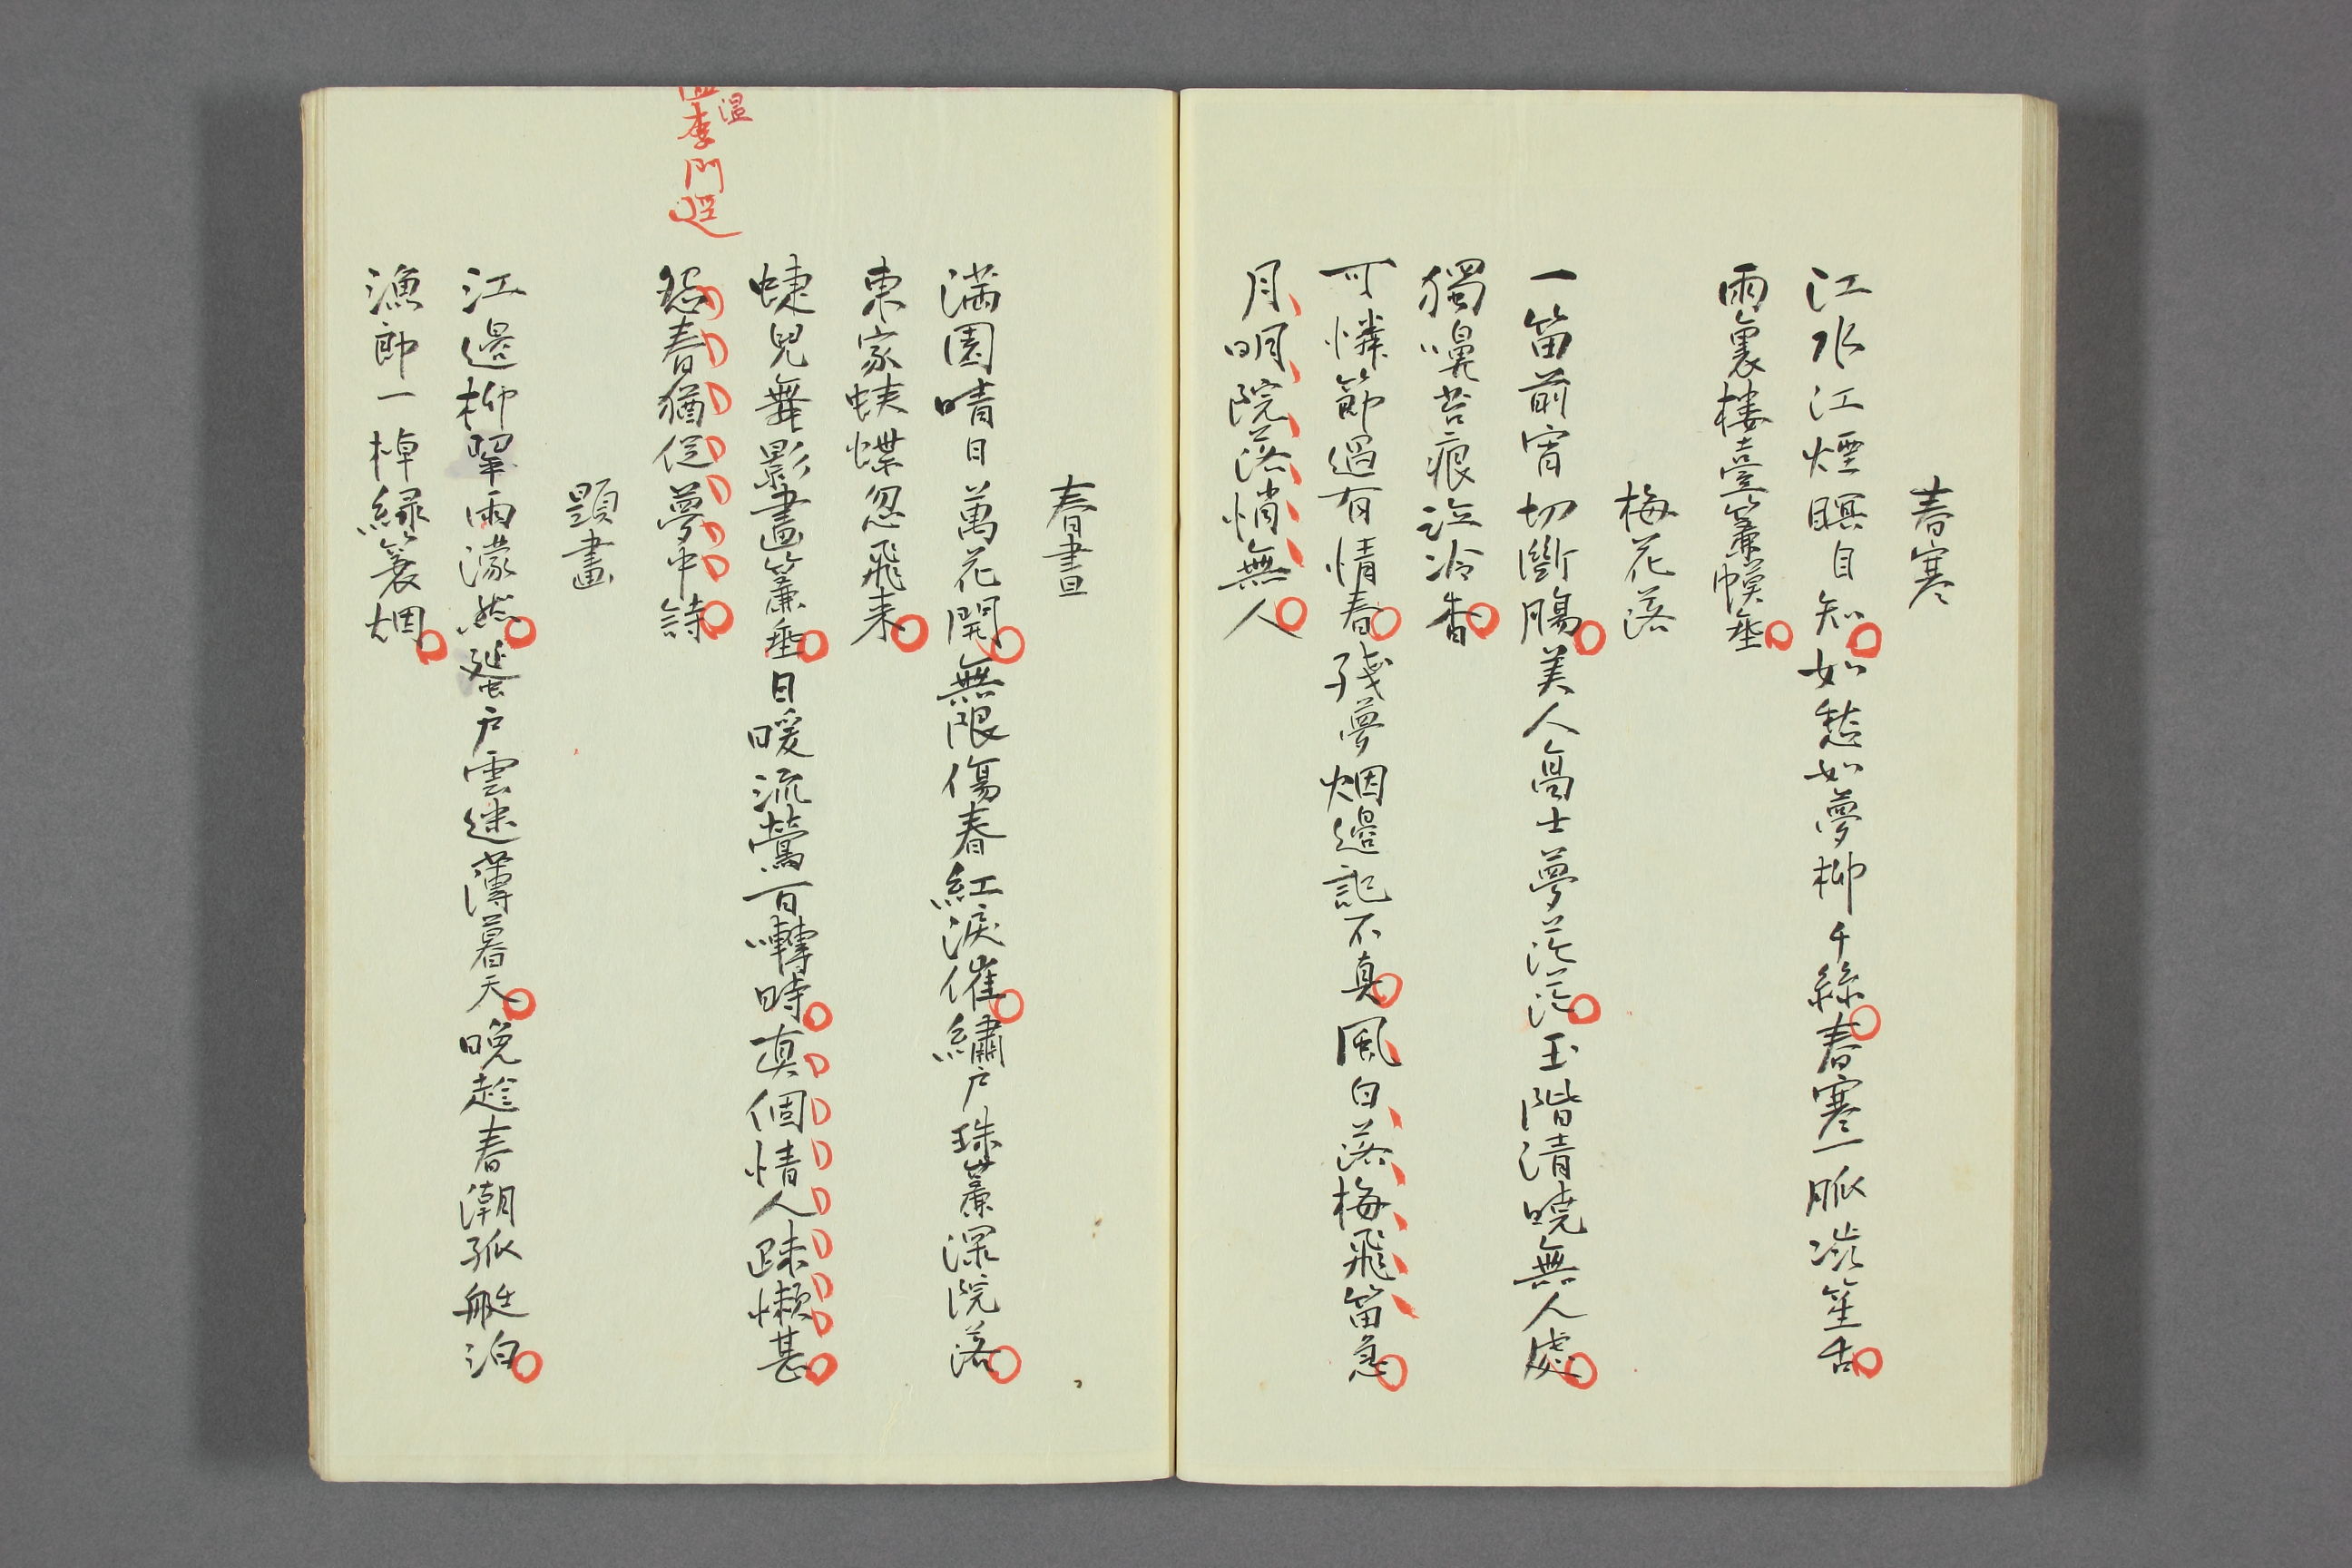 春寒
江水江煙暝自知如愁如夢柳千絲春寒一脈澁笙舌
雨裏樓臺簾幙垂
梅花落
一笛前宵切斷腸美人高士夢茫茫玉階清曉無人處
獨嗅苔痕泣冷香
可憐節過有情春殘夢烟邊記不真風白落梅飛笛急
月明院落悄無人
春晝
満園晴日萬花開無限傷春紅淚催繡戶珠簾深院落
東家蛺蝶忽飛来
蜨兒舞影畫簾垂日暖流鶯百囀時真個情人疎懶甚
怨春猶促夢中詩
溫
溫李門逕
題畫
江邊柳翠雨濛然蜑戶雲迷薄暮天晚趁春潮孤艇泊
漁郎一棹綠簑烟